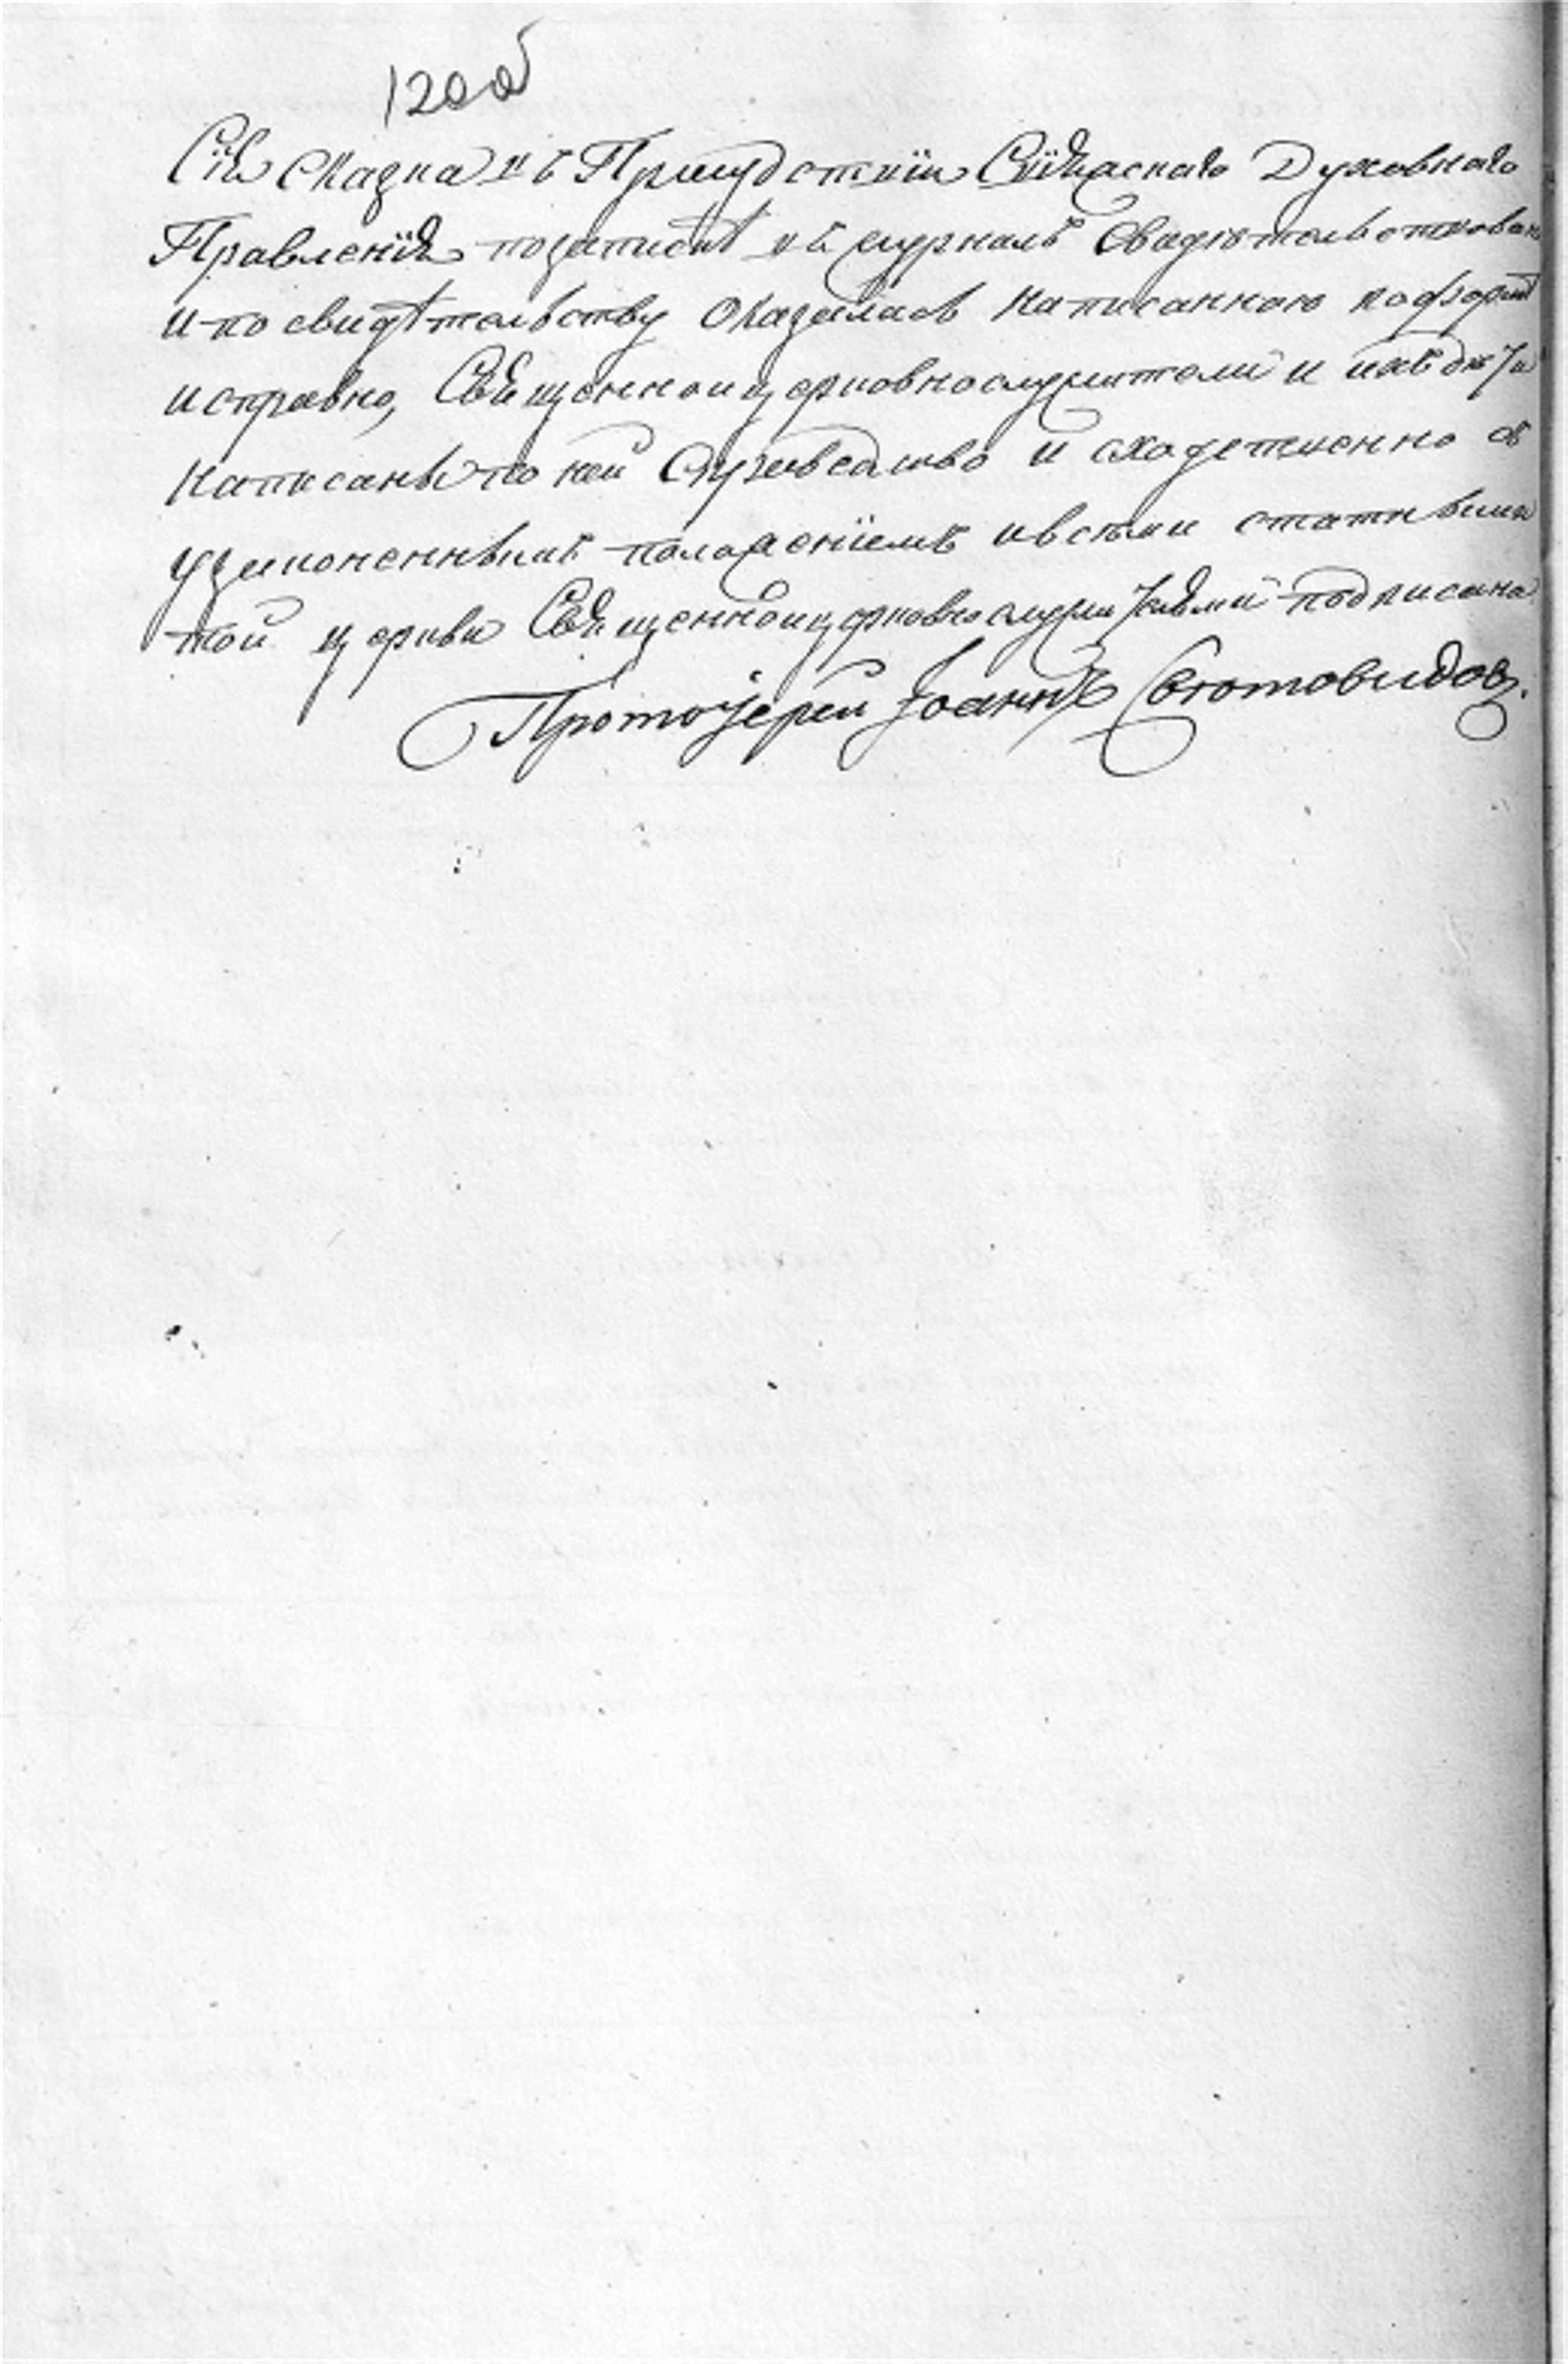 120об
Сія Сказка въ Присудствіи Свіяжскаго Духовнаго
Правленія позаписке въ журналъ свидетельствован
и по свидѣтельству Оказалась написанною поформе
исправно, Священноицерковнослужители и ихъ дети
написаны по ней Справедливо и сходственно съ
узаконеннымъ положеніемъ ивсеми статными
той церкви Священноицерковнослужителями подписана
Протоіерей Іоаннъ Боготовидов.